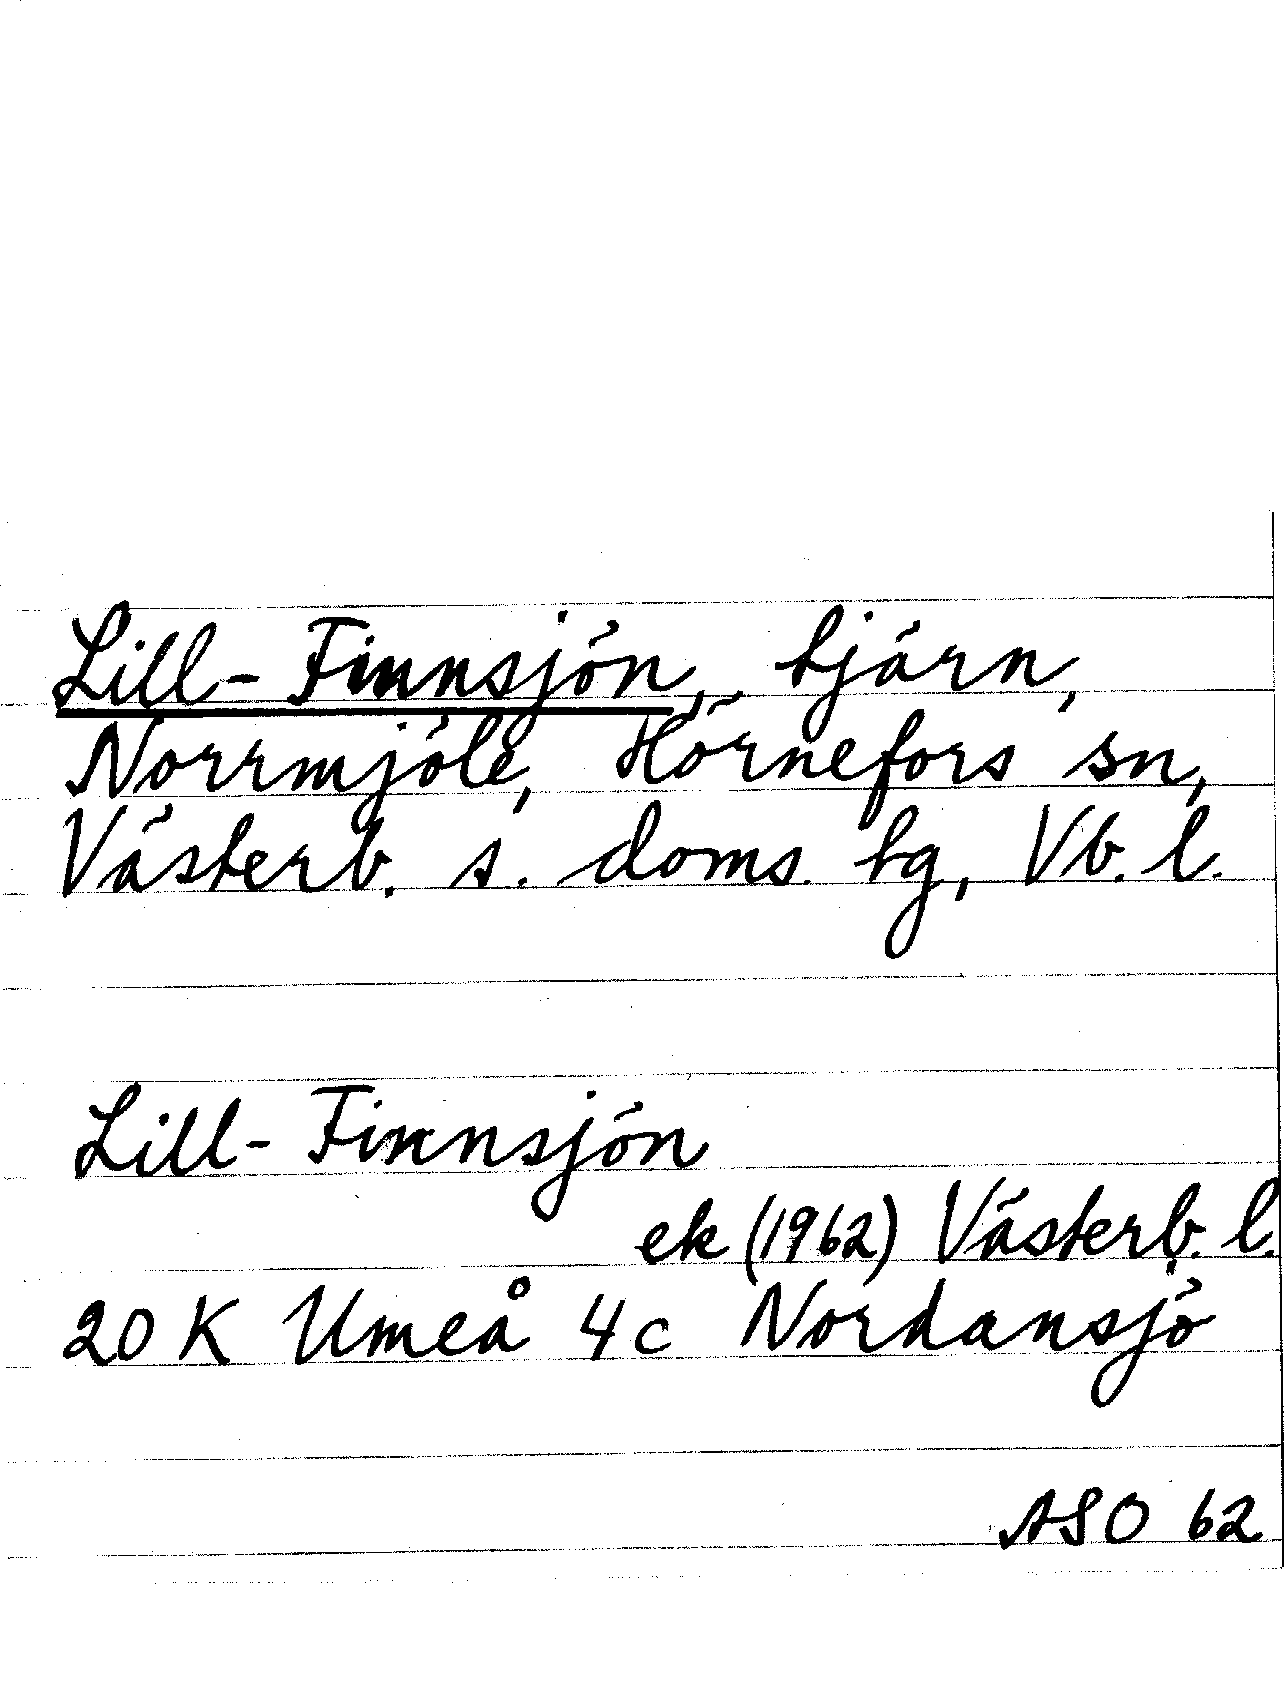 Lill-Finnsjön, tjärn,
Norrmjöle, Hörnefors sn,
Västerb. s. doms. tg, Vb. l.
Lill-Finnsjön
ek (1962) Västerb. l.
20 K Umeå 4c Nordansjö
ASO 62